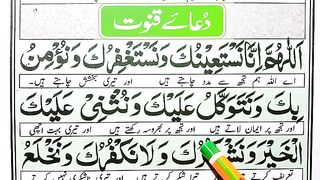 دُعائے قنوت
اَللّٰهُمَّ اِنَّا نَسْتَعِيْنُكَ وَنَسْتَغْفِرُكَ وَنُؤْمِنُ
اے اللہ ہم تجھ سے مدد چاہتے ہیں اور تیری بخشش چاہتے ہیں۔
بِكَ وَنَتَوَكَّلُ عَلَيْكَ وَنُثْنِيْ عَلَيْكَ
اور تجھ پر ایمان لاتے ہیں اور تجھ پر بھروسہ رکھتے ہیں اور تیری بہت اچھی
الْخَيْرَ وَنَشْكُرُكَ وَلَا نَكْفُرُكَ وَنَخْلَعُ
تعریف کرتے شکر کرتے ہیں اور تیری ناشکری نہیں کرتے